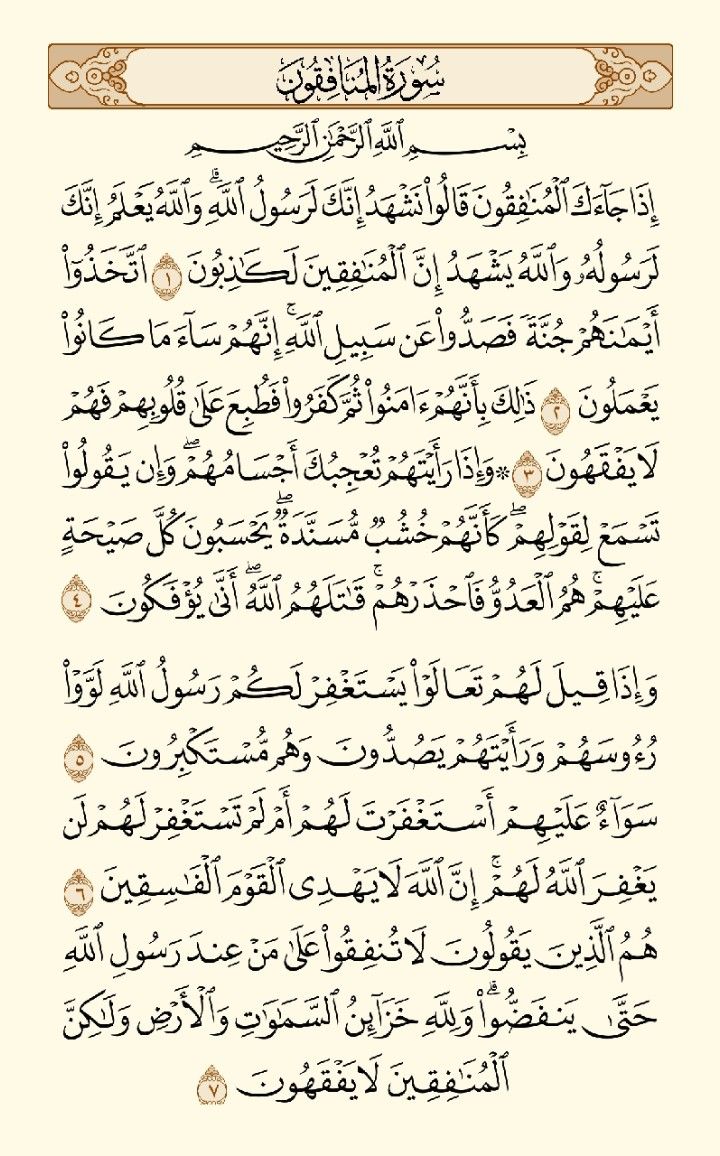 سُورَةُ الْمُنَافِقُونَ
بِسْمِ ٱللَّهِ ٱلرَّحْمَٰنِ ٱلرَّحِيمِ
إِذَا جَآءَكَ ٱلْمُنَٰفِقُونَ قَالُوا۟ نَشْهَدُ إِنَّكَ لَرَسُولُ ٱللَّهِۗ وَٱللَّهُ يَعْلَمُ إِنَّكَ
لَرَسُولُهُۥ وَٱللَّهُ يَشْهَدُ إِنَّ ٱلْمُنَٰفِقِينَ لَكَٰذِبُونَ ١ ٱتَّخَذُوٓا۟
أَيْمَٰنَهُمْ جُنَّةً فَصَدُّوا۟ عَن سَبِيلِ ٱللَّهِۚ إِنَّهُمْ سَآءَ مَا كَانُوا۟
يَعْمَلُونَ ٢ ذَٰلِكَ بِأَنَّهُمْ ءَامَنُوا۟ ثُمَّ كَفَرُوا۟ فَطُبِعَ عَلَىٰ قُلُوبِهِمْ فَهُمْ
لَا يَفْقَهُونَ ٣ ۞ وَإِذَا رَأَيْتَهُمْ تُعْجِبُكَ أَجْسَامُهُمْۖ وَإِن يَقُولُوا۟
تَسْمَعْ لِقَوْلِهِمْۖ كَأَنَّهُمْ خُشُبٌ مُّسَنَّدَةٌۖ يَحْسَبُونَ كُلَّ صَيْحَةٍ
عَلَيْهِمْۚ هُمُ ٱلْعَدُوُّ فَٱحْذَرْهُمْۚ قَٰتَلَهُمُ ٱللَّهُۖ أَنَّىٰ يُؤْفَكُونَ ٤
وَإِذَا قِيلَ لَهُمْ تَعَالَوْا۟ يَسْتَغْفِرْ لَكُمْ رَسُولُ ٱللَّهِ لَوَّوْا۟
رُءُوسَهُمْ وَرَأَيْتَهُمْ يَصُدُّونَ وَهُم مُّسْتَكْبِرُونَ ٥
سَوَآءٌ عَلَيْهِمْ أَسْتَغْفَرْتَ لَهُمْ أَمْ لَمْ تَسْتَغْفِرْ لَهُمْ لَن
يَغْفِرَ ٱللَّهُ لَهُمْۚ إِنَّ ٱللَّهَ لَا يَهْدِى ٱلْقَوْمَ ٱلْفَٰسِقِينَ ٦
هُمُ ٱلَّذِينَ يَقُولُونَ لَا تُنفِقُوا۟ عَلَىٰ مَنْ عِندَ رَسُولِ ٱللَّهِ
حَتَّىٰ يَنفَضُّوا۟ۗ وَلِلَّهِ خَزَآئِنُ ٱلسَّمَٰوَٰتِ وَٱلْأَرْضِ وَلَٰكِنَّ
ٱلْمُنَٰفِقِينَ لَا يَفْقَهُونَ ٧